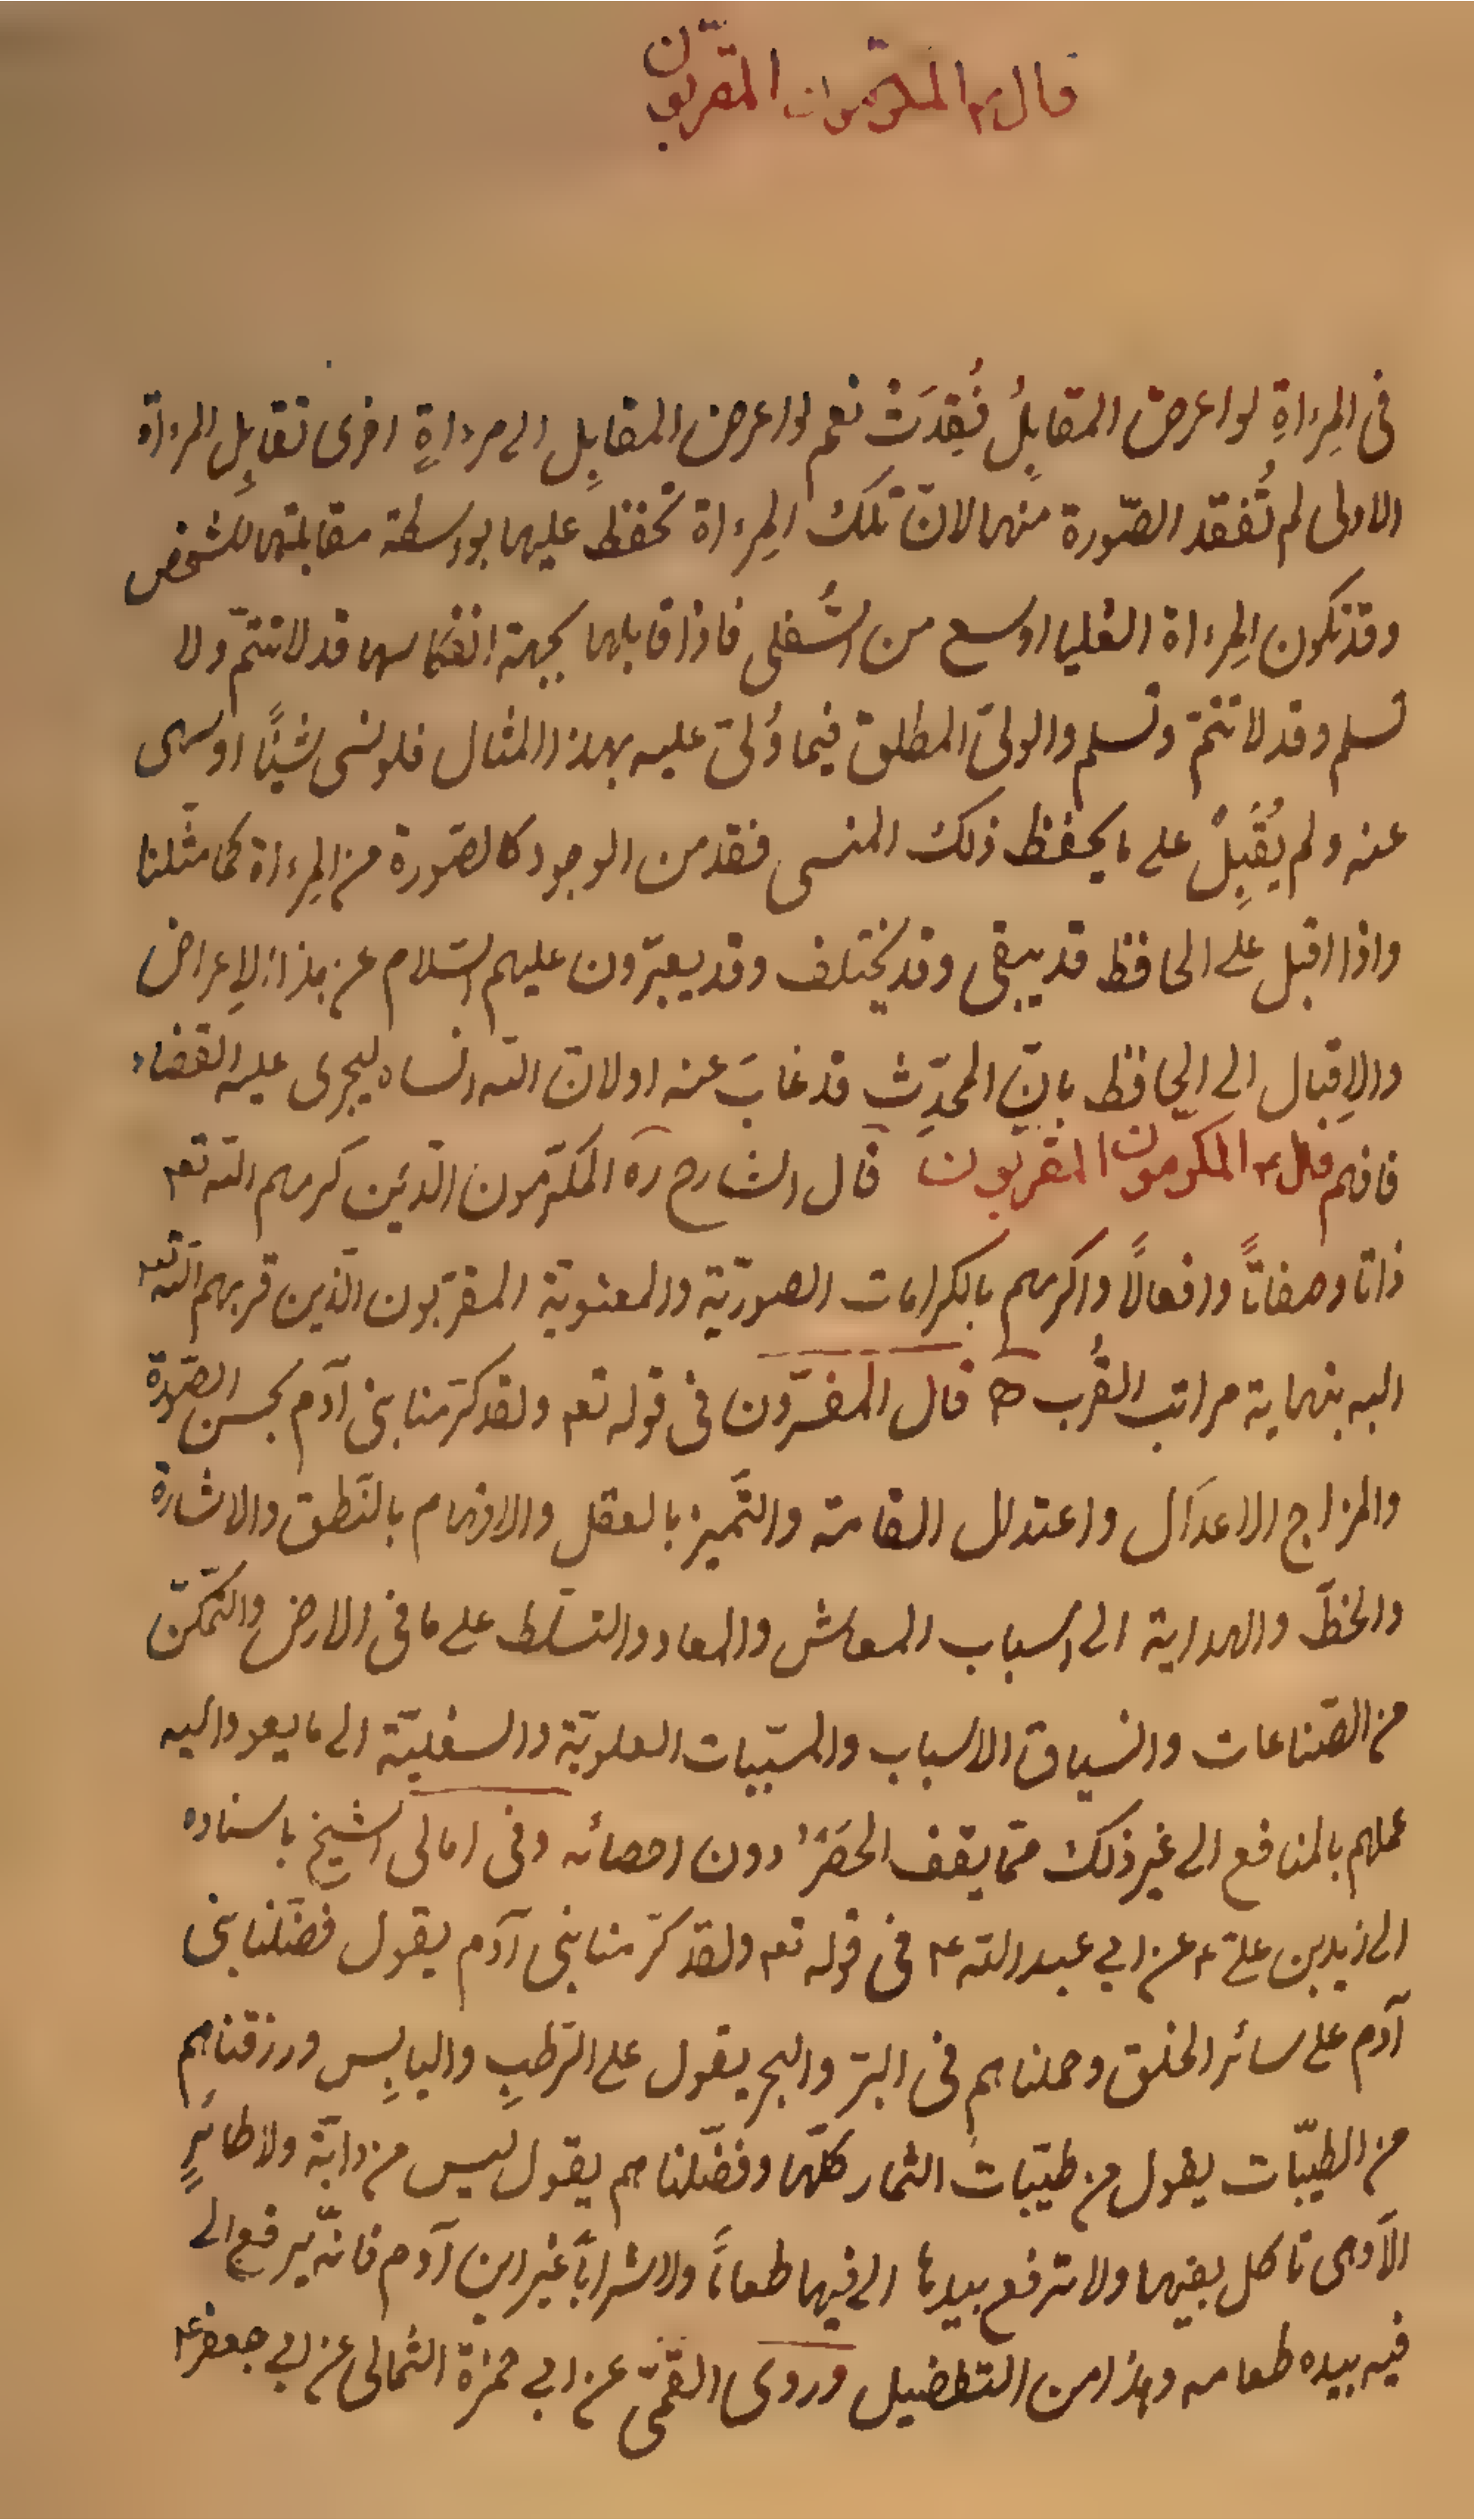 قال ع المكرّمون المقرّبون
فى المِرءاةِ لو اعرض المقابِلُ فُقِدَتْ نعم لو اعرض المقابِل الى مرءاةٍ اخرى تقابِل المرءاة
الاولى لم تُفقد الصّورة منها لانّ تلك المِرءاة تحفظ عليها بواسطة مقابلتها للشخص
وقد تكون المِرءاة العُليا اوسع من السُّفلى فاذا قابلها بجهة انعكاسها قد لا تتمّ ولا
تسلم وقد لا تتمّ وتسلم والولىّ المطلق فيما وُلّىَ عليه بهذا المثال فلو نسى شيئًا او سهى
عنه ولم يُقْبِلْ على ما يحفظ ذلك المنسى فقد من الوجود كالصّورة من المِرءاة كما مثّلنا
واذا اقبل على الحافظ قد يبقى وقد يختلف وقد يعبّرون عليهم السّلام عن هذا الاِعراض
والاِقبال الى الحافظ بانّ المحدِّث قد غابَ عنه او لانّ اللّه انساه ليجرى عليه القضاء
فافهم قال ع المكرّمون المقرّبون قال الشارح ره المكرّمون الّذين كرمهم اللّه تعـ
ذاتا وصفاتًا وافعالًا واكرمهم بالكرامات الصوريّة والمعنويّة المقرّبون الّذين قربهم اللّه تعـ
اليه بنهاية مراتب القُرب ﻫ قال المفسّرون فى قوله تعـ ولقد كرّمنا بنى آدم بحسن الصّورة
والمزاج الاعدل واعتدال القامة والتّميز بالعقل والافهام بالنّطق والاشارة
والخطّ والهداية الى اسباب المعاش والمعاد والتسلّط على ما فى الارض والتمكّن
من الصّناعات وانسياق الاسباب والمسبّبات العلويّة والسفليّة الى ما يعود اليه
عملهم بالمنافع الى غير ذلك ممّا يقف الحَصْرُ دون احصائه وفى امالى الشيخ باسناده
الى زيد بن علىّ ع عن ابي عبد اللّه ع فى قوله تعـ ولقد كرّمنا بنى آدم يقول فضّلنا بنى
آدم على سائر الخلق وحملناهم فى البرّ والبحر يقول على الرّطبِ واليابِس ورزقناهم
من الطيّبات يقول من طيّبات الثمار كلّها وفضّلناهم يقول ليس من دابّة ولا طائرٍ
الاّ وهى تاكل بفيها ولا ترفع بيدها الى فيها طعامًا ولا شرابًا غير ابن آدم فانّه يرفع الى
فيه بيده طعامه وهذا من التفضيل وروى القمّى عن ابي حمزة الثمالى عن ابي جعفر ع